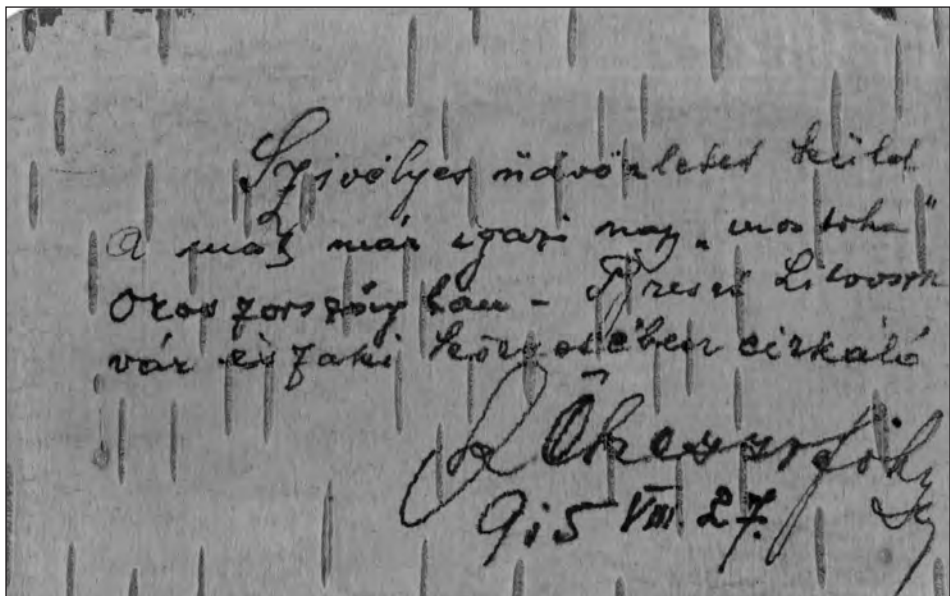 Szivélyes üdvözletet küld
A ma már igazi nagy „mostoha”
Oroszországban – Breszt Litovszk
vár északi környékében cirkáló
915 VIII. 27.